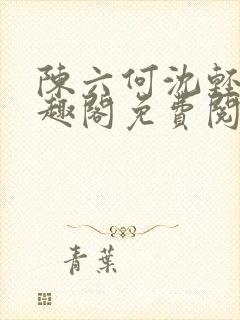 陳六何沈輕
趣閣免費閱
青葉